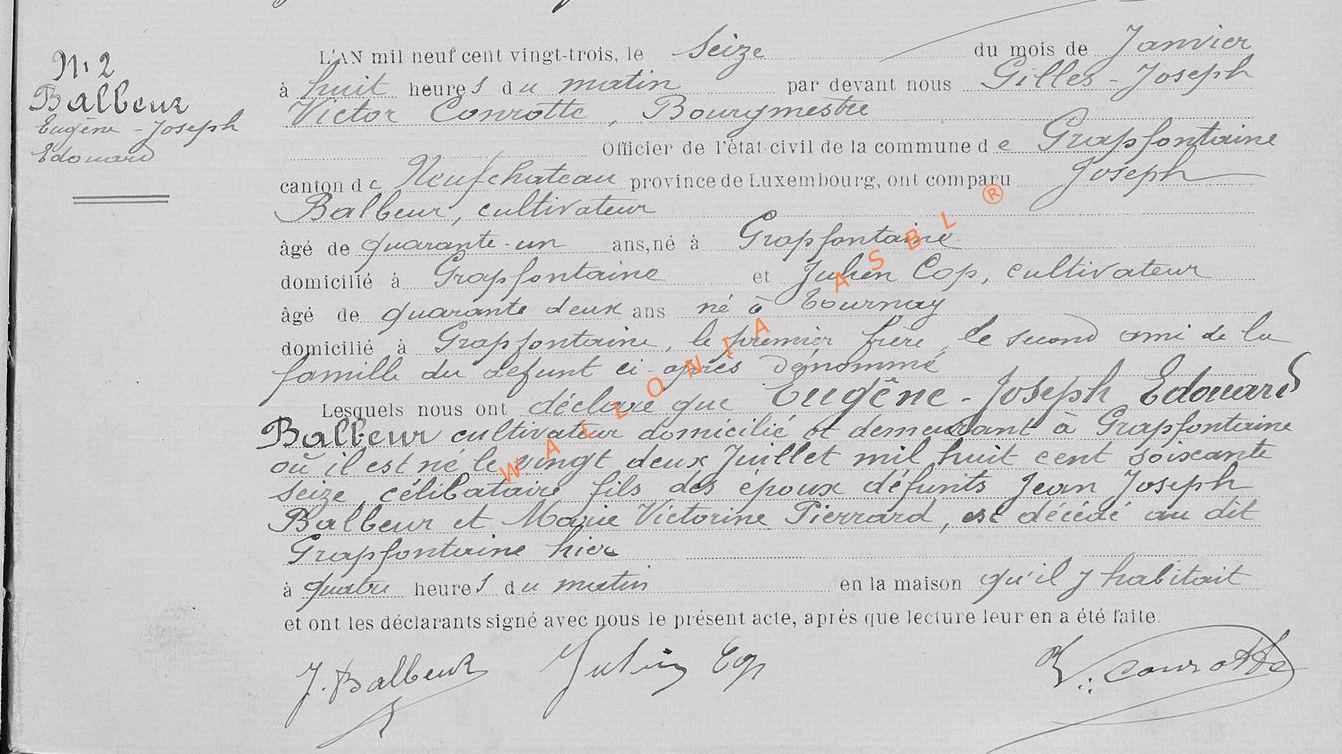 N. 2
Balbeur
Eugène-Joseph
Edouard
L'AN mil neuf cent vingt-trois, le seize du mois de Janvier
à huit heures du matin par devant nous Gilles-Joseph
Victor Conrotte, Bourgmestre
Officier de l'état-civil de la commune de Grapfontaine
canton de Neufchateau province de Luxembourg, ont comparu Joseph
Balbeur, cultivateur
âgé de quarante-un ans, né à Grapfontaine
domicilié à Grapfontaine et Julien Cop, cultivateur
âgé de quarante deux ans né à Tournay
domicilié à Grapfontaine, le premier frère, le second ami de la
famille du défunt ci-après dénommé
Lesquels nous ont déclaré que Eugêne-Joseph Edouard
Balbeur cultivateur domicilié et demeurant à Grapfontaine
où il est né le vingt deux Juillet mil huit cent soixante
seize, célibataire fils des époux défunts Jean Joseph
Balbeur et Marie Victorine Pierrard, est décédé au dit
Grapfontaine hier
à quatre heures du matin en la maison qu'il y habitait
et ont les déclarants signé avec nous le présent acte, après que lecture leur en a été faite.
J. Balbeur Julien Cop V. Conrotte
WALLONIA ASBL ®